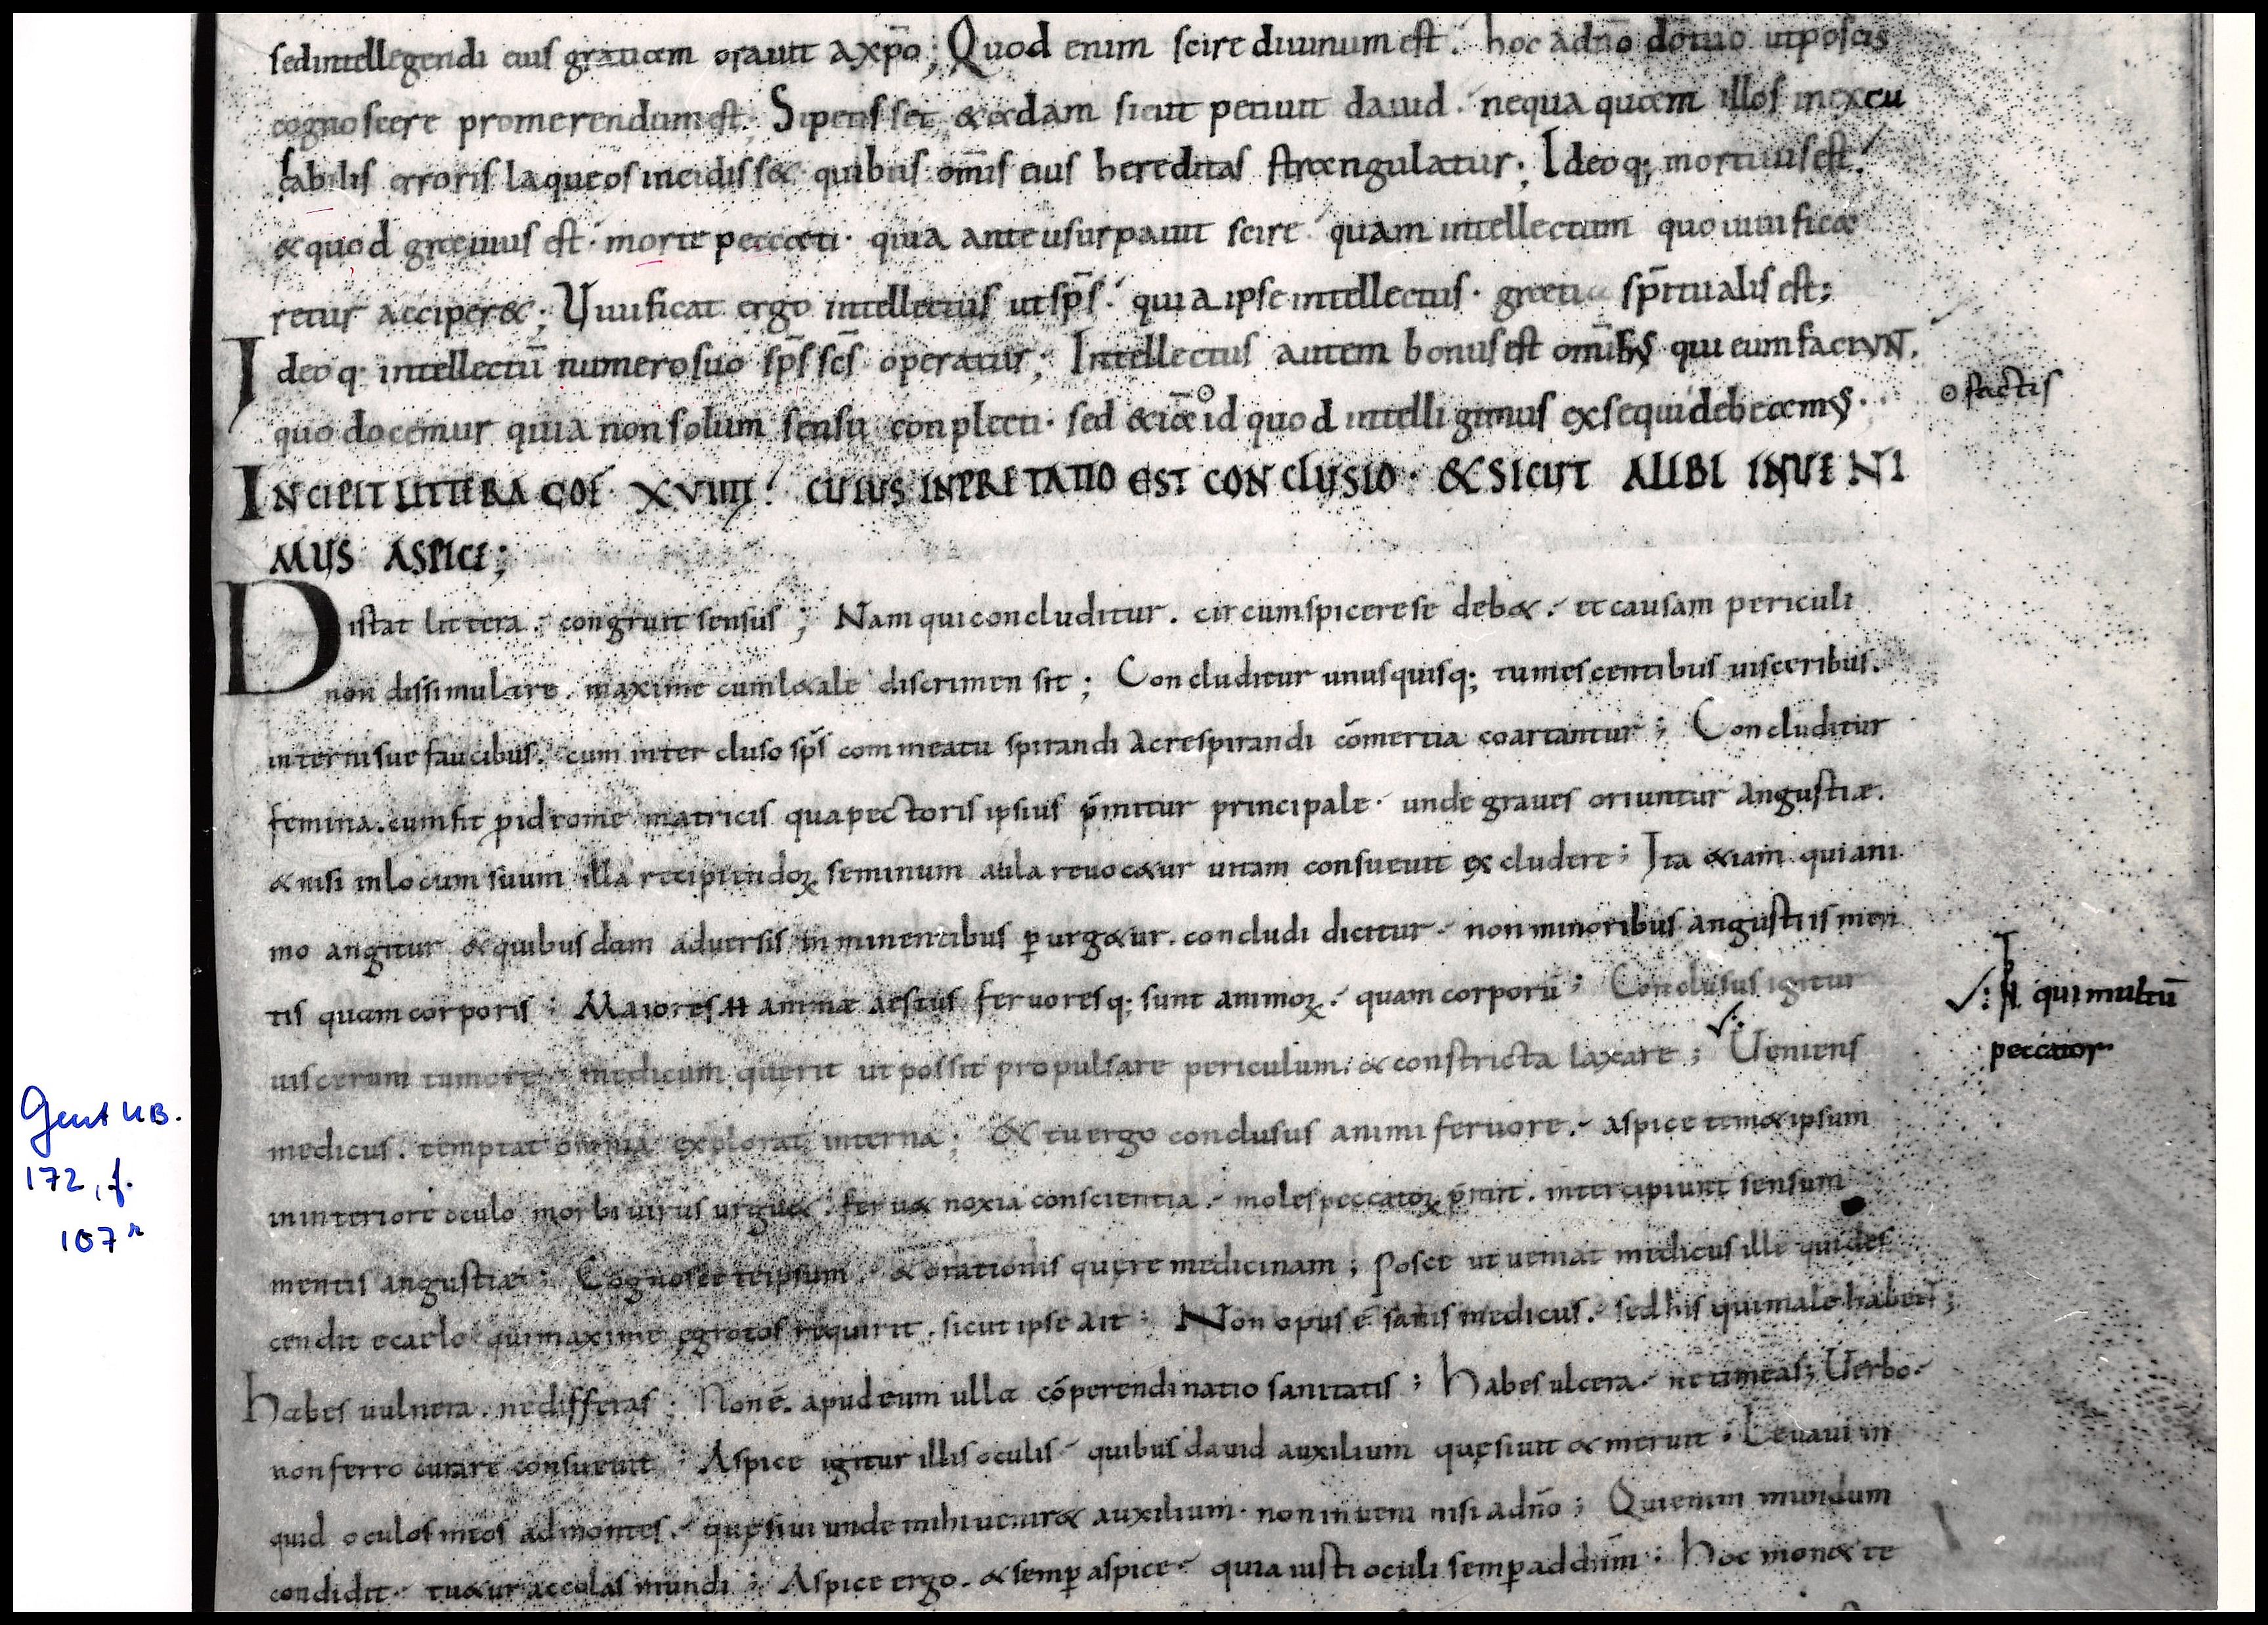 sed intellegendi eius gratiam orauit a xp̄o; Quod enim scire diuinum est. hoc a dn̄o dō tuo ut possis
cognoscere promerendum est. Si petisset & adam sicut petiuit dauid. nequaquam illos inexcu
sabilis erroris laqueos incidiss&. quibus om̄is eius hereditas strangulatur; Ideoq; mortuus est.
& quod grauius est. morte peccati. quia ante usurpauit scire quam intellectum quo uiuifica
retur acciper&; Uiuificat ergo intellectus ut sp̄s. quia ipse intellectus. gratia sp̄ritualis est;
Ideoq; intellectū numero suo sp̄s sc̄s operatur; Intellectus autem bonus est om̄ibus qui eum faciunt.
quo docemur quia non solum sensu conplecti. sed &iā id quod intelligimus exsequi debeamus.
factis
INCIPIT LITTERA COF. XVIIII. CUIUS INPRETATIO EST CONCLUSIO. & SICUT ALIBI INUENI
MUS ASPICE;
Distat littera. congruit sensus; Nam qui concluditur. circumspicere se deb&. et causam periculi
non dissimulare. maxime cum l&ale discrimen sit; Concluditur unusquisq; tumescentibus uisceribus.
internisue faucibus. cum intercluso sp̄s commeatu spirandi ac respirandi cōmertia coartantur; Concluditur
femina. cum fit pidrome matricis qua pectoris ipsius p̄mitur principale. unde graues oriuntur angustiæ.
& nisi in locum suum illa recipiendoꝝ seminum aula reuoc&ur uitam consueuit excludere; Ita &iam qui ani
mo angitur & quibusdam aduersis inminentibus ꝑurg&ur. concludi dicitur. non minoribus angustiis men
tis quam corporis; Maiores H animæ aestus feruoresq; sunt animoꝝ. quam corporū; Conclusus igitur
✓: qui multū
uiscerum tumore. medicum querit ut possit propulsare periculum. & constricta laxare; ✓: Ueniens
peccator
medicus. temptat omnia explorat interna; & tu ergo conclusus animi feruore. aspice tem&ipsum
in interiore oculo morbi uirus urgu&. feru& noxia conscientia. moles peccatoꝝ p̄mit. intercipiunt sensum
mentis angustiæ; Cognosce teipsum. & orationis quere medicinam; Posce ut ueniat medicus ille qui des
cendit e caelo qui maxime egrotos requirit. sicut ipse ait; Non opus ē sanis medicus. sed his qui male habent;
habes uulnera. ne differas; Non ē. apud eum ulla cōperendinatio sanitatis; habes ulcera. ne timeas; Uerbo.
non ferro curare consueuit; Aspice igitur illis oculis. quibus dauid auxilium quęsiuit & meruit; Leuaui in
quid oculos meos ad montes. quęsiui unde mihi uenir& auxilium. non inueni nisi a dn̄o; Qui enim mundum
condidit. tu&ur accolas mundi; Aspice ergo. & semꝑ aspice. quia iusti oculi semꝑ ad dn̄m; hoc mon& te
Gent UB.
172, f.
107r